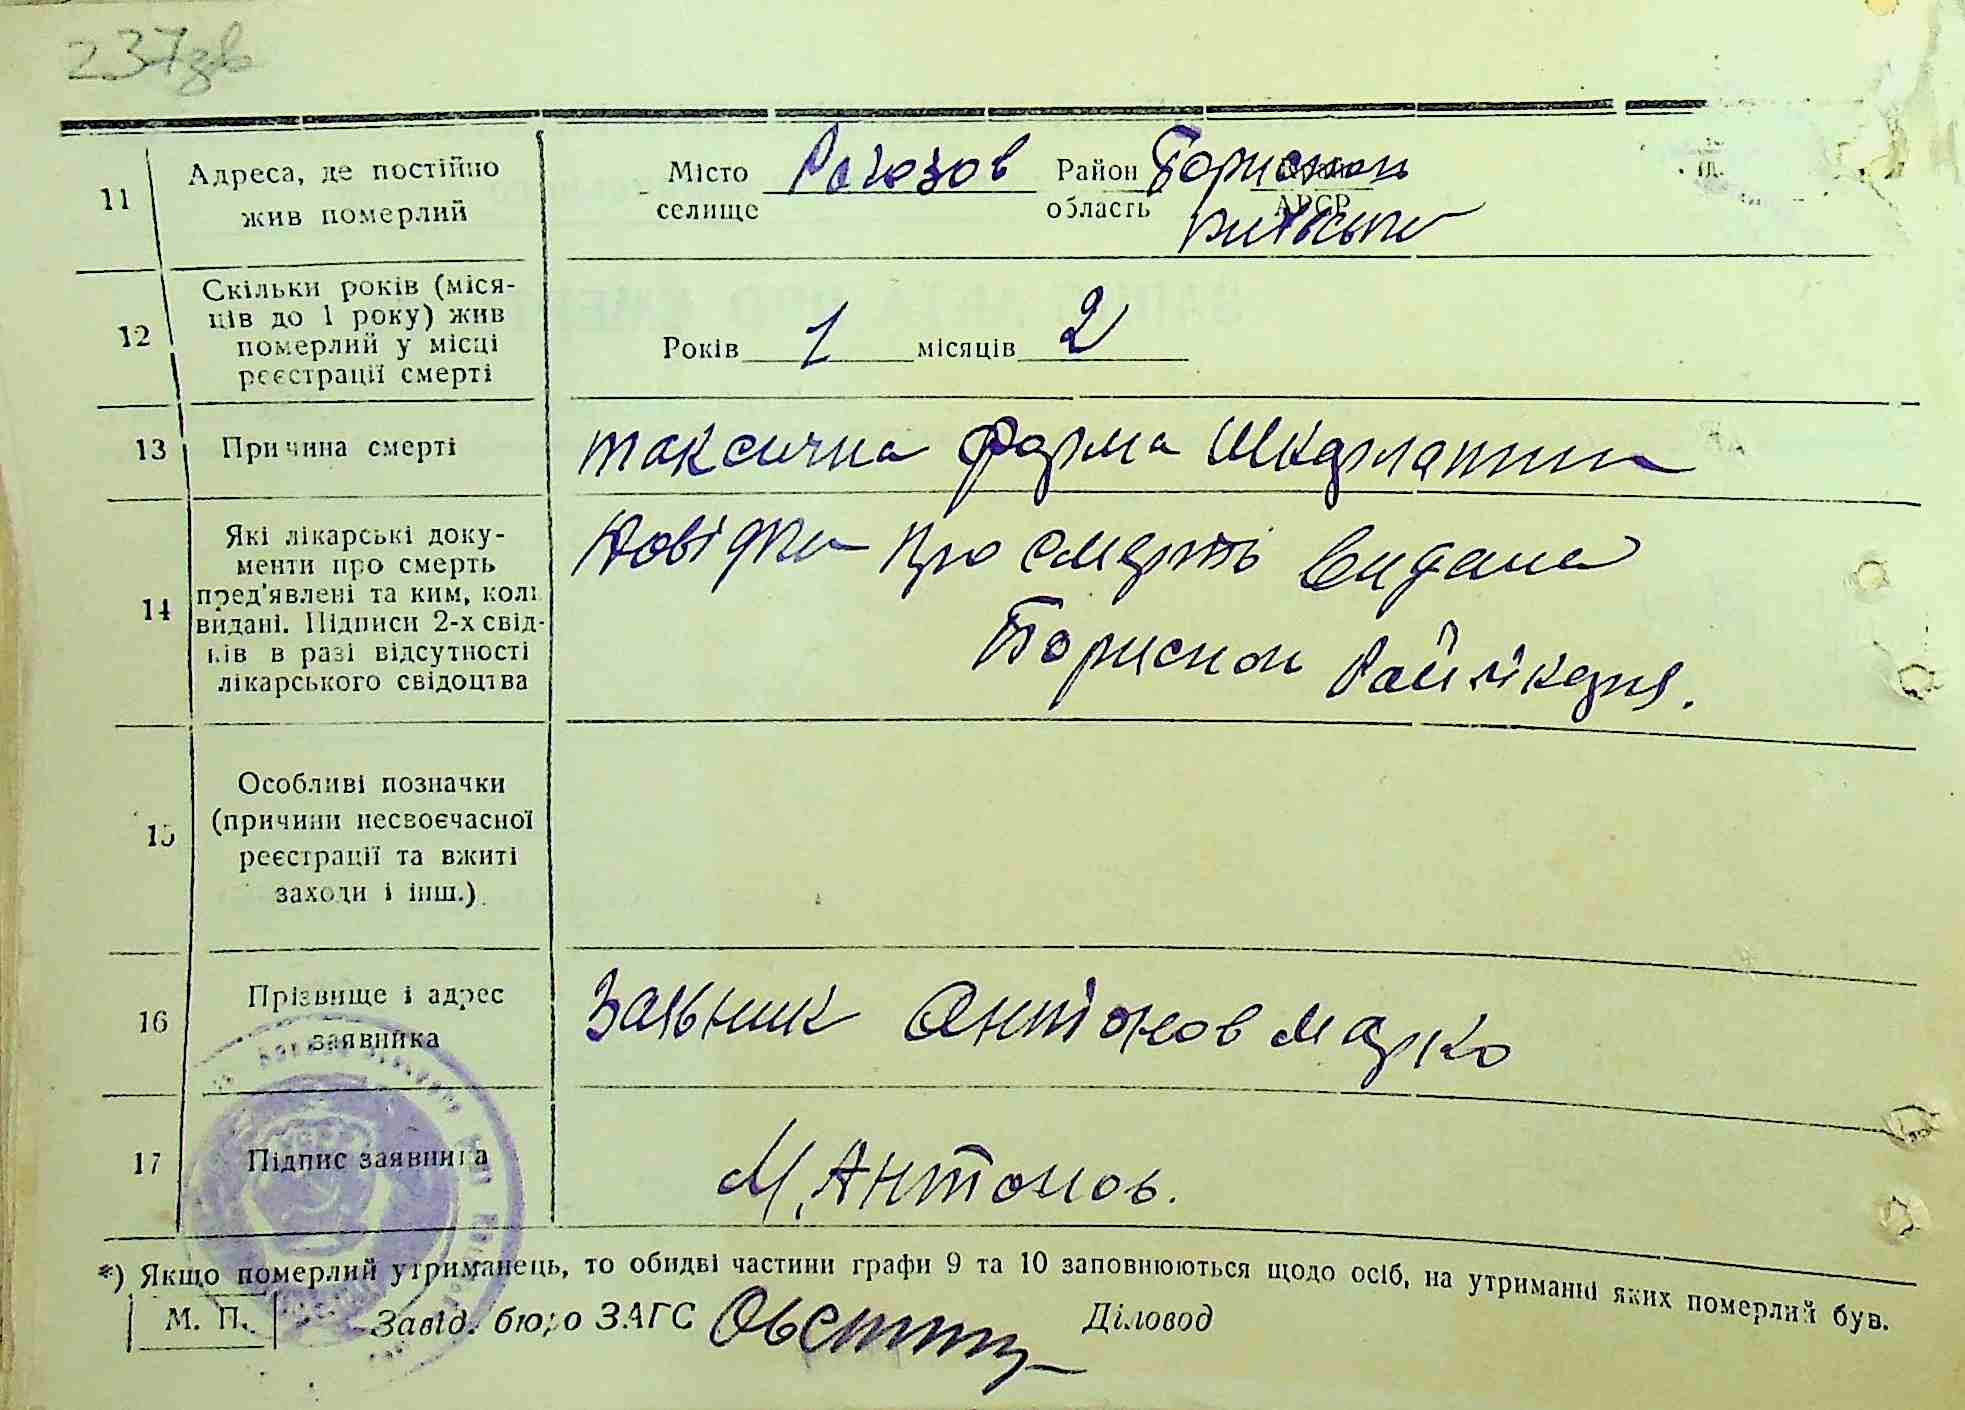 237зв
11 Адреса, де постійно жив померлий
Місто селище Рогозов Район область Бориспол АРСР
Київської
12 Скільки років (міся-
ців до 1 року) жив
померлий у місці
реєстрації смерті
Років 1 місяців 2
13 Причина смерті
таксична форма шкарлатини
14 Які лікарські доку-
менти про смерть
пред'явлені та ким, коли
видані. Підписи 2-х свід-
ків в разі відсутності
лікарського свідоцтва
Довідка про смерть видана
Бориспол Райлікарня.
15 Особливі позначки
(причини несвоєчасної
реєстрації та вжиті
заходи і інш.)
16 Прізвище і адрес
заявника
Заявник Антонов Марко
17 Підпис заявника
М. Антонов.
*) Якщо померлий утриманець, то обидві частини графи 9 та 10 заповнюються щодо осіб, на утриманні яких померлий був.
М. П. Завід. бюро ЗАГС Діловод